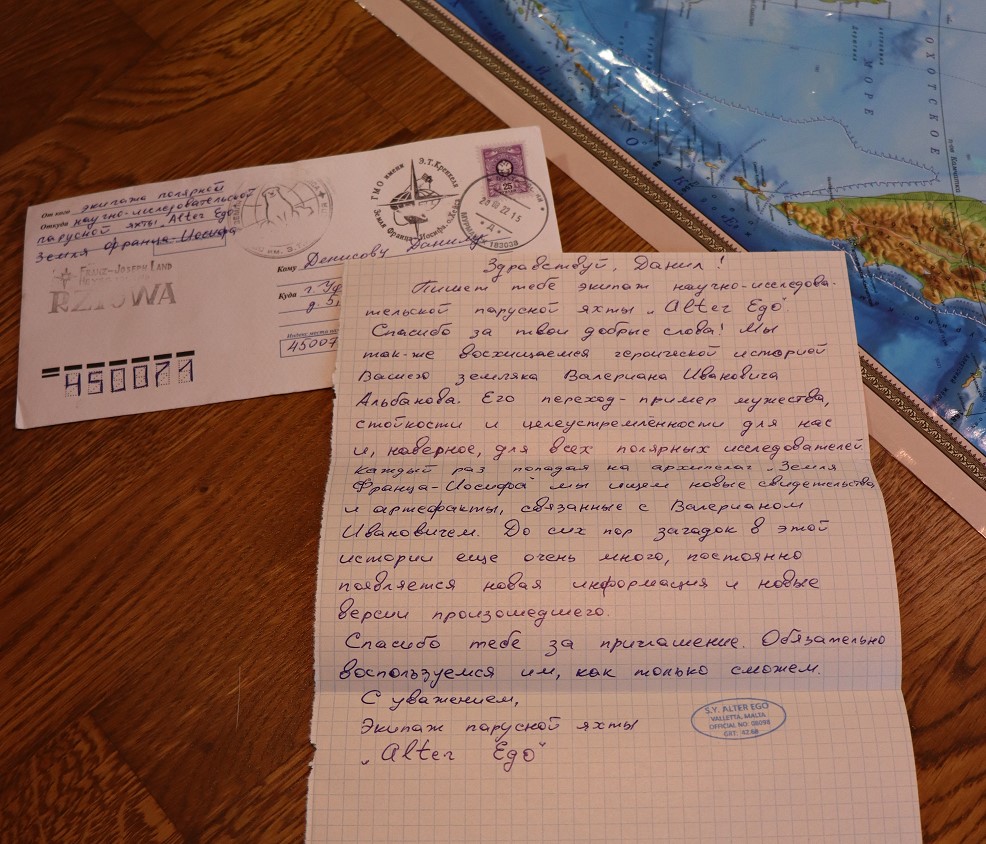 От кого экипажа полярной
Откуда научно-исследовательской
парусной яхты „Alter Ego"
Земля Франца-Иосифа
FRANZ-JOSEPH LAND
RZ1OWA
450071
ГМО имени Э.Т.Кренкеля
Земля Франца-Иосифа, о.Хейса
26
МУРМАНСК 183038
Кому Денисову Данилу
Куда г. Уф
45007
ОХОТСКОЕ
МОРЕ
Здравствуй, Данил!
Пишет тебе экипаж научно-исследова-
тельской парусной яхты „Alter Ego".
Спасибо за твои добрые слова! Мы
так-же восхищаемся героической историей
Вашего земляка Валериана Ивановича
Альбанова. Его переход - пример мужества,
стойкости и целеустремлённости для нас
и, наверное, для всех полярных исследователей
Каждый раз попадая на архипелаг „Земля
Франца-Иосифа" мы ищем новые свидетельства
и артефакты, связанные с Валерианом
Ивановичем. До сих пор загадок в этой
истории еще очень много, постоянно
появляется новая информация и новые
версии произошедшего.
Спасибо тебе за приглашение. Обязательно
воспользуемся им, как только сможем.
С уважением,
Экипаж парусной яхты
„Alter Ego"
S.Y. ALTER EGO
VALLETTA, MALTA
OFFICIAL NO: 08098
GRT: 42.68